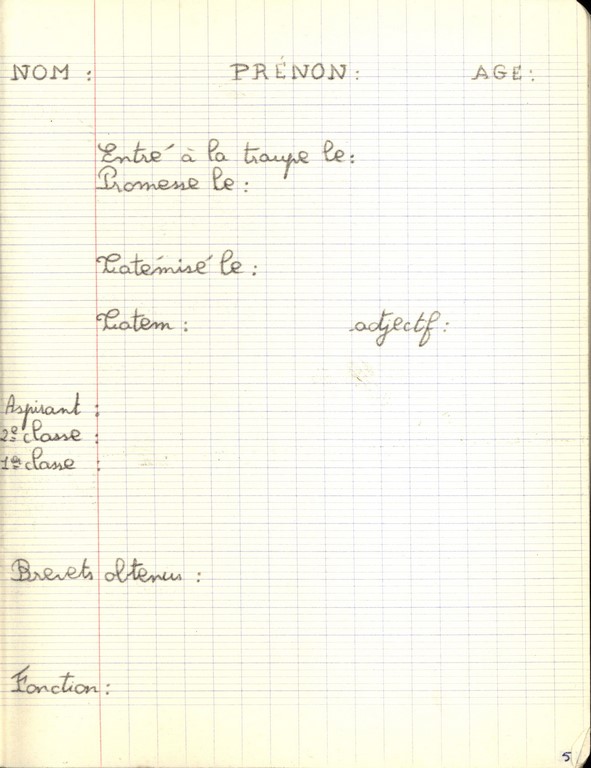 NOM : PRÉNON : AGE :
Entré à la troupe le :
Promesse le :
Totémisé le :
Totem : adjectf :
Aspirant :
2e classe :
1e classe :
Brevets obtenus :
Fonction :
5